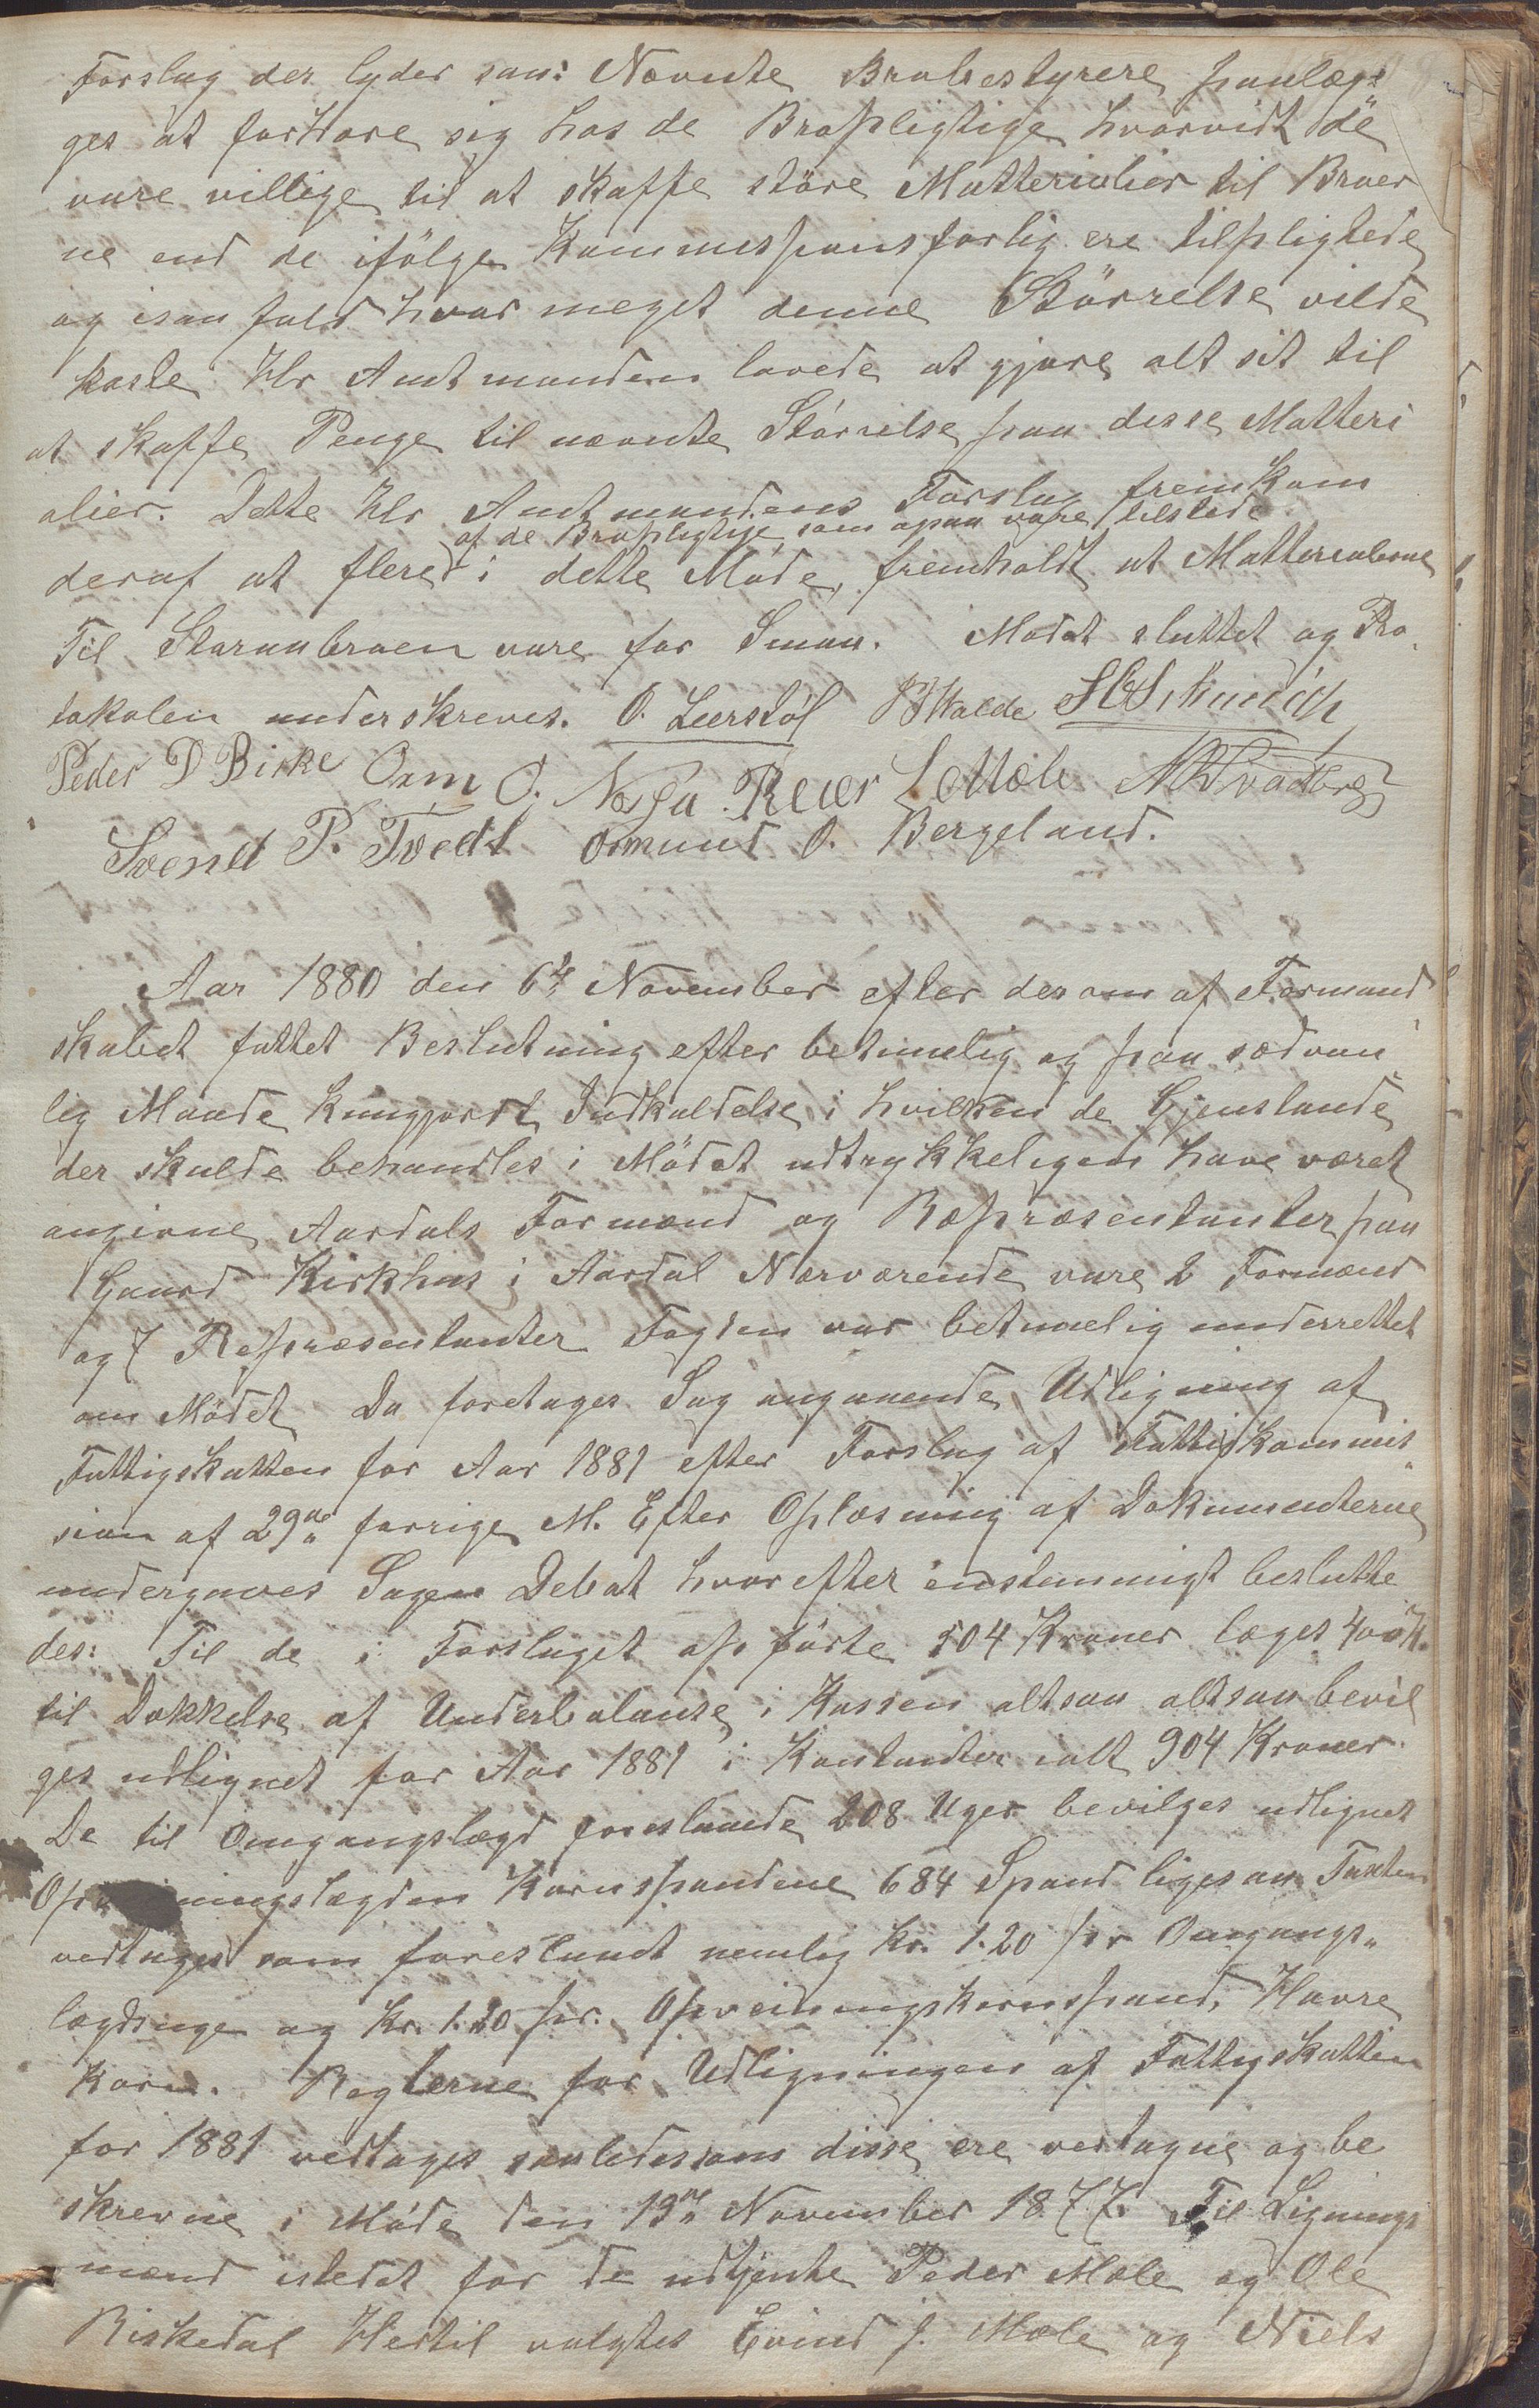 Forslag der lyder saa: Nævnte Brobestyrere paalæg-
ges at forhøre sig hos de Bropligtige hvorvidt de
vare villige til at skaffe störe Matterialier til Broer
ne end de ifölge Kommisjonsforlig ere tilpligtede
og isaa fald hvor meget denne Störrelse vilde
koste. Hr Amtmanden lovede at gjöre alt sit til
at skaffe Penge til nævnte Störrelse paa disse Matteri
alier. Dette Hr Amtmandens Forslag fremkom
af de Bropligtige, som ogsaa vare tilstede
deraf at flere i dette Möde, fremholdt at Matterialerne
Til Storaabroen vare for Smaa. Mödet sluttet og Pro-
tokolen underskreves. O. Leerstöl
Peder D Birke Orm O. Reier L Mæle
Svend P. Tvedt Ormund O. Bergeland.
Aar 1880 den 6te November efter derom af Formand
skabet fattet Beslutning efter betimelig og paa sædvan
lig Maade kungjordt Indkaldelse i hvilken de Gjenstande
der skulde behandles i Mödet udtrykkeligen have været
angivne Aardals Formænd og Ræpræsentanter paa
Gaard Kirkhus i Aardal Nærværende vare 2 Formænd
og 7 Repræsentanter Fogden var betimelig underrettet
om Mödet Da foretages Sag angaaende Udligning af
Fattigskatten for Aar 1881 efter Forslag af Fattigkommis-
sion af 29de forrige M. Efter Oplæsning af Dokumenterne
undergaves Sagen Debat hvorefter enstemmigt beslutte
des: Til de i Forslaget opförte 504 Kroner læges 400 K.
til Dækkelse af Underbalanse i Kassen altsaa altsaa bevil
ges udlignet for Aar 1881 i Kontanter ialt 904 Kroner.
De til Omgangslægd foreslaaede 208 Uger bevilges udlignet
Kornspandene 684 Spand ligesaa Taxten
vedtages som foreslaaet nemlig Kr. 1.20 pr Omgangs-
lægdsuge og Kr. 1.20 pr. Opveiningskornspand, Havre
korn. Reglerne for Udligningen af Fattigskatten
for 1881 vedtages saaledes som disse ere vedtagne og be
skrevne i Möde den 13de November 1877. Til Lignings
mænd istedet for de udtjente Peder Mæle og Ole
Riskedal Hertil valgtes Eivind J. Mæle og Niels